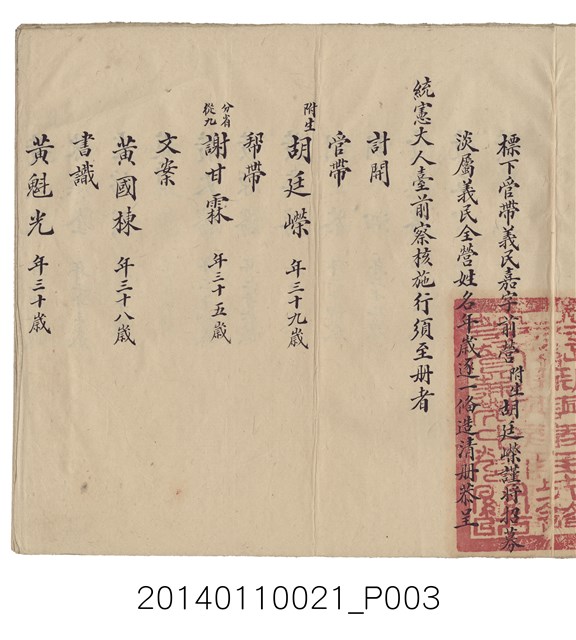 標下管帶義民嘉字前營附生胡廷嶸謹將招募
淡屬義民全營姓名年歲逐一修造清册恭呈
統憲大人臺前察核施行須至册者
計開
管帶
附生胡廷嶸年三十九歲
帮帶
分省從九謝甘霖年三十五歲
文案
黃國棟年三十八歲
書識
黃魁光年三十歲
20140110021_P003